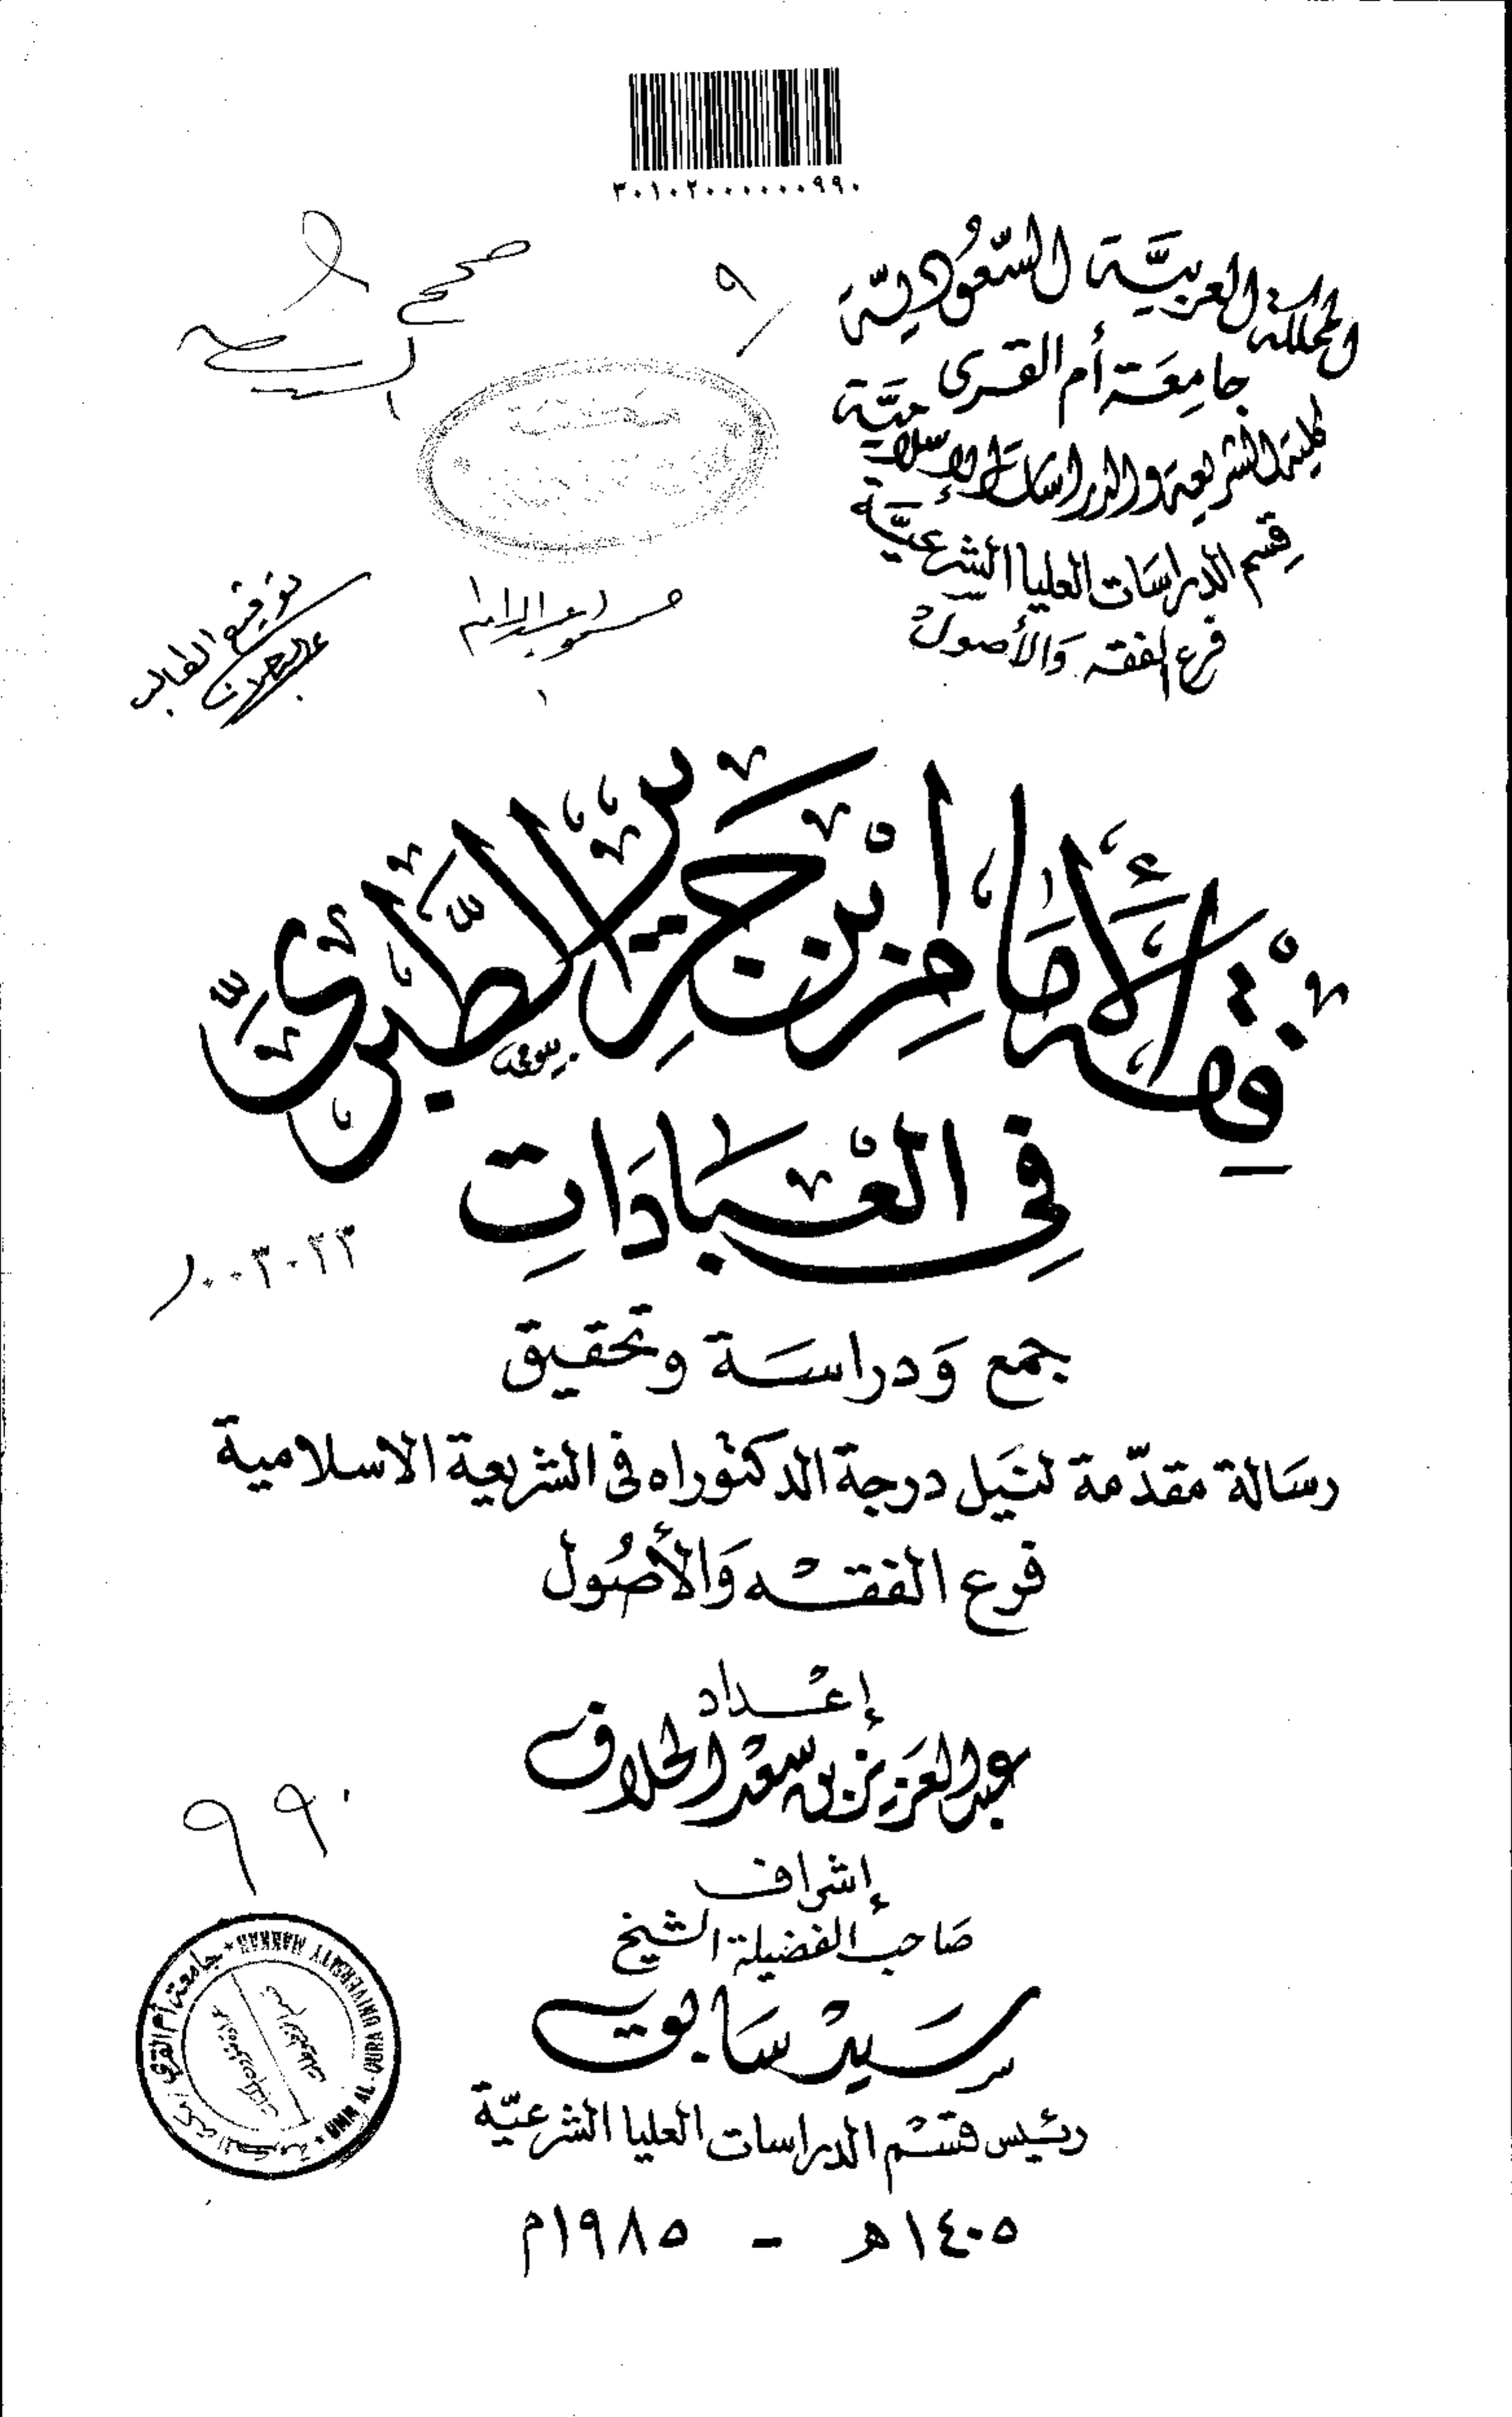 ٣٠١٠٢٠٠٠٠٠٠٩٩٠
المملكة العربيَّة السّعُوديّة
جامِعَة أم القرى
كلية الشريعة والدراسات الإسلاميَّة
قِسم الدراسَات العليا الشرعيَّة
فرع الفقه وَالأصول
صحح
توقيع الطالب
فِقْهُ الإِمَامِ ابْنِ جَرِيرٍ الطَّبَرِيِّ
فِي الْعِبَادَاتِ
١٠٠٣٠٢٣
جمع وَدراسَة وتحقيق
رسَالة مقدّمة لنَيل درجة الدكتوراه فى الشريعة الاسلامية
فرع الفقْه وَالأصُول
إعْداد
عبد العزيز بن سعْد الحلاف
٩٩٠
إشراف
صَاحب الفضيلة الشيخ
سَيد سَابق
رئيس قسْم الدراسات العليا الشرعيّة
١٤٠٥ه - ١٩٨٥م
جامعة أم القرى
UMM AL-QURA UNIVERSITY MAKKAH